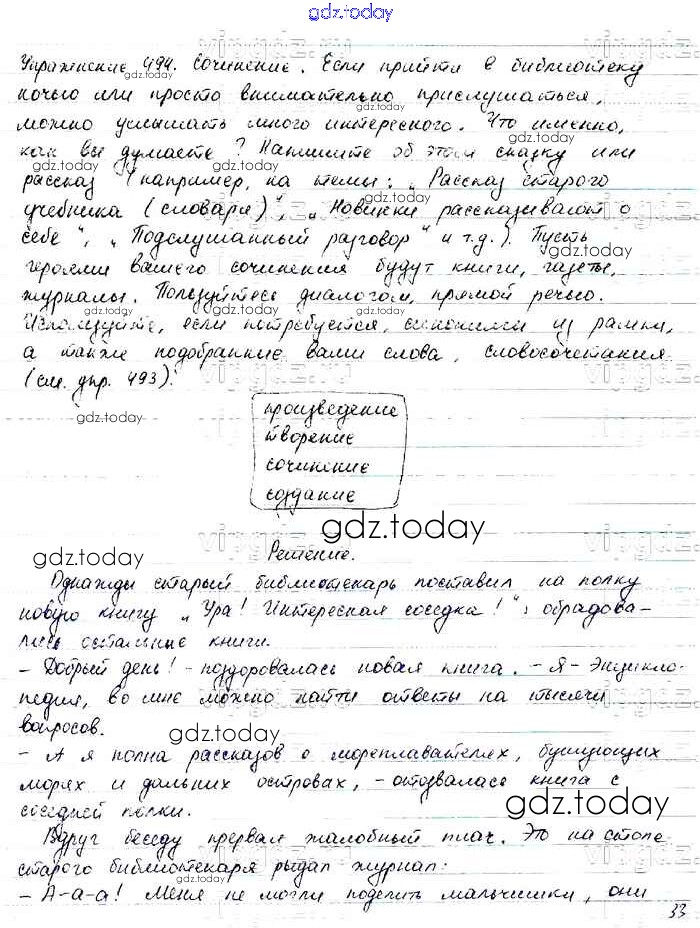 gdz.today
Упражнение 494. Сочинение. Если прийти в библиотеку
ночью или просто внимательно прислушаться,
можно услышать много интересного. Что именно,
как вы думаете? Напишите об этом сказку или
рассказ (например, на темы: „Рассказ старого
учебника (словаря)", „Новинки рассказывают о
себе", „Подслушанный разговор" и т.д.). Пусть
героями вашего сочинения будут книги, газеты,
журналы. Пользуйтесь диалогом, прямой речью.
Используйте, если потребуется, синонимы из рамки,
а также подобранные вами слова, словосочетания
(см. упр. 493).
произведение
творение
сочинение
создание
gdz.today
Решение.
Однажды старый библиотекарь поставил на полку
новую книгу „Ура! Интересная соседка!", обрадова-
лись остальные книги.
- Добрый день! - поздоровалась новая книга. - Я - Энцикло-
педия, во мне можно найти ответы на тысячи
вопросов.
- А я полна рассказов о мореплавателях, бушующих
морях и дальних островах, - отозвалась книга с
соседней полки.
Вдруг беседу прервал жалобный плач. Это на столе
старого библиотекаря рыдал журнал:
- А-а-а! Меня не могли поделить мальчишки, они
33